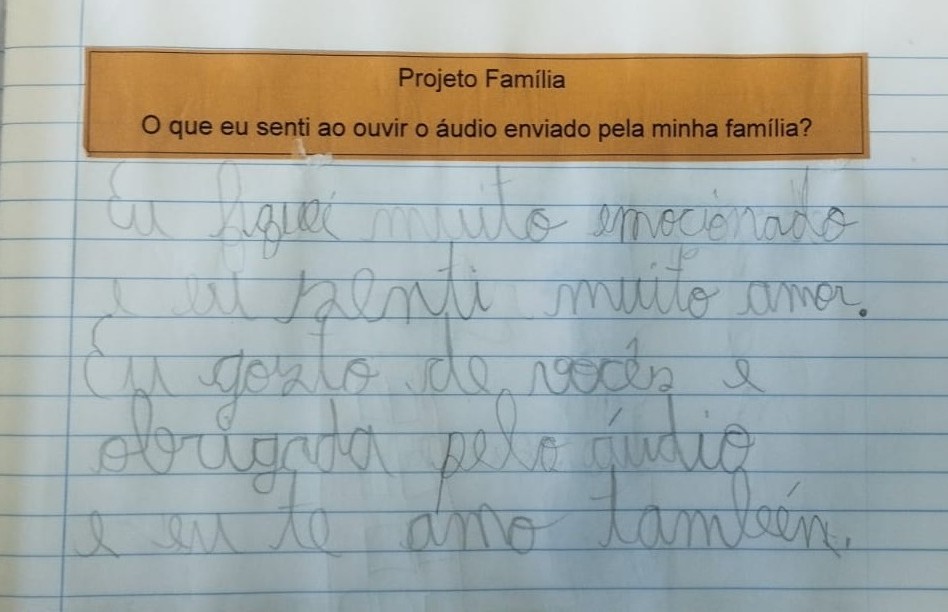 Projeto Família
O que eu senti ao ouvir o áudio enviado pela minha família?
Eu fiquei muito emocionado
e eu senti muito amor.
Eu gosto de vocês e
obrigada pelo áudio
e eu te amo tambéén.